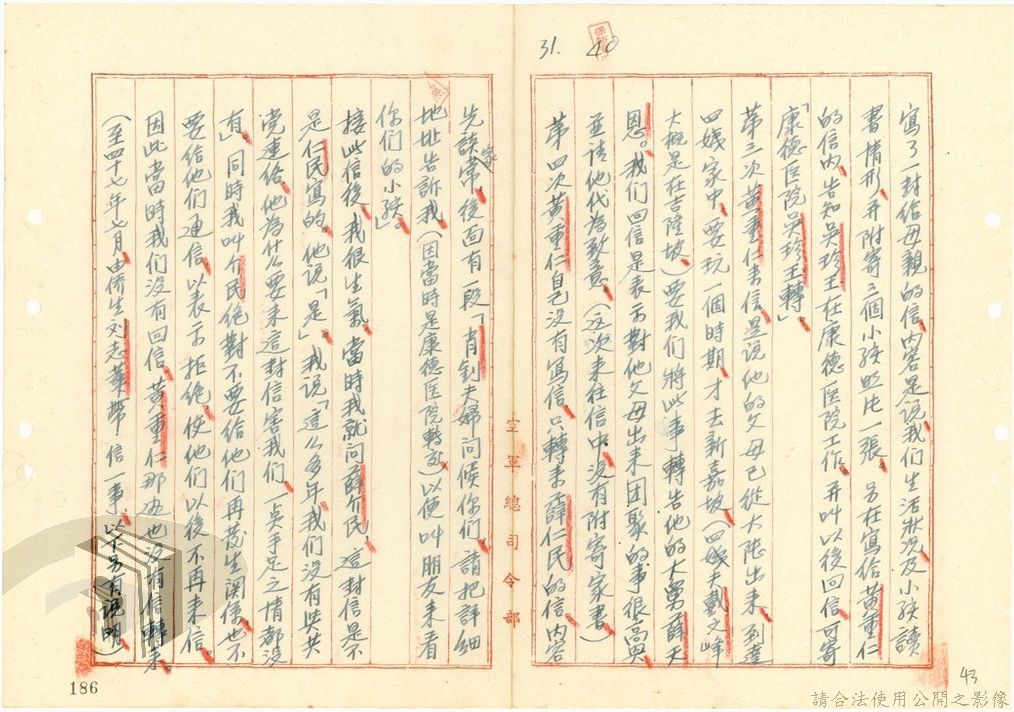 31.
40
寫了一封給母親的信,內容是說我们生活狀況及小孩讀
書情形,并附寄三個小孩照片一張。另在寫給黄重仁
的信內,告知吳珍王在康德医院工作。并叫以後回信可寄
「康德医院吳珍王轉」。
第三次黄重仁来信,是说他的父母已從大陸出来,到達
四姨家中,要玩一個時期,才去新嘉坡(四姨夫戴之峰
大概是在吉隆坡)要我们將此事轉告他的大舅薛天
恩。我们回信是表示對他父母出来团聚的事很高興
並请他代為致意。(这次来往信中没有附寄家書)
第四次黄重仁自己没有寫信,只轉来薛仁民的信,内容
空軍總司令部
先談家常,後面有一段「肖釗夫婦问候你们,請把詳細
地址告訴我,(因當時是康德医院轉交)以便叫朋友来看
你们的小孩」。
接此信後,我很生氣,當時我就问薛介民,這封信是不
是仁民寫的,他说「是」,我说「這么多年,我们没有與共
党連絡,他為什么要来這封信害我们,一点手足之情都没
有」,同時我叫介民绝對不要给他们再發生関係,也不
要给他们通信,以表示拒绝,使他们以後不再来信。
因此當時我们没有回信,黄重仁那边也没有信轉来。
(至四十七年七月,由侨生刘志華帶信一事,以下另有说明。)
186
43
請合法使用公開之影像